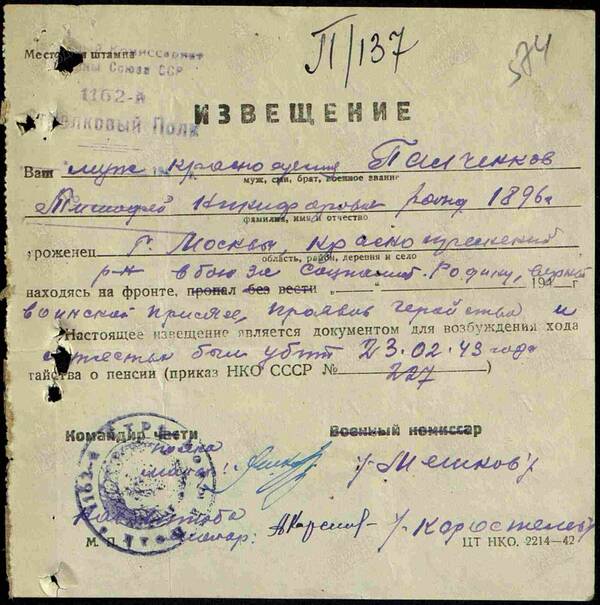 П/137
574
Место для штампа
Народный Комиссариат
Обороны Союза ССР
1162-й
Стрелковый Полк
ИЗВЕЩЕНИЕ
Ваш муж красноармеец Палченков
муж, сын, брат, военное звание
Тимофей Никифорович рожд 1896г
фамилия, имя и отчество
уроженец г. Москвы, Краснопресненский
область, район, деревня и село
р-н в бою за Социалист. Родину, верный
находясь на фронте, пропал без вести „ “ 194 г
воинской присяге, проявив геройство и
Настоящее извещение является документом для возбуждения хода
мужество был убит 23.02.43 года
тайства о пенсии (приказ НКО СССР № 227 )
Командир части Военный комиссар
полка
/-Мешков/
Нач штаба
/-Коростелев/
М. П.
ЦТ НКО. 2214—42